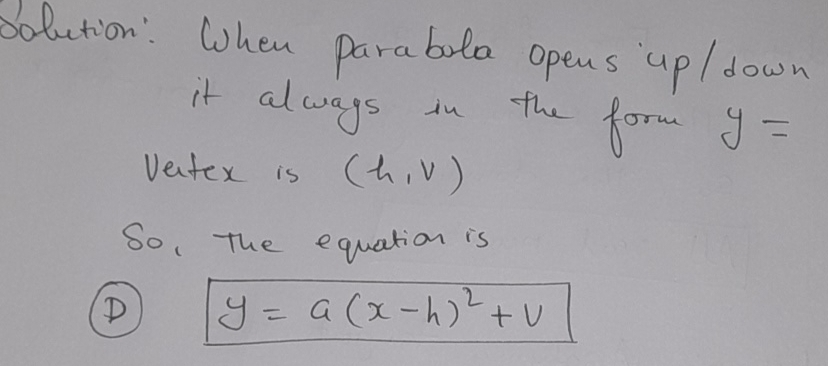 Solution: When parabola opens up/down
it always in the form y =
Vertex is (h,v)
So, The equation is
D y = a(x-h)²+v